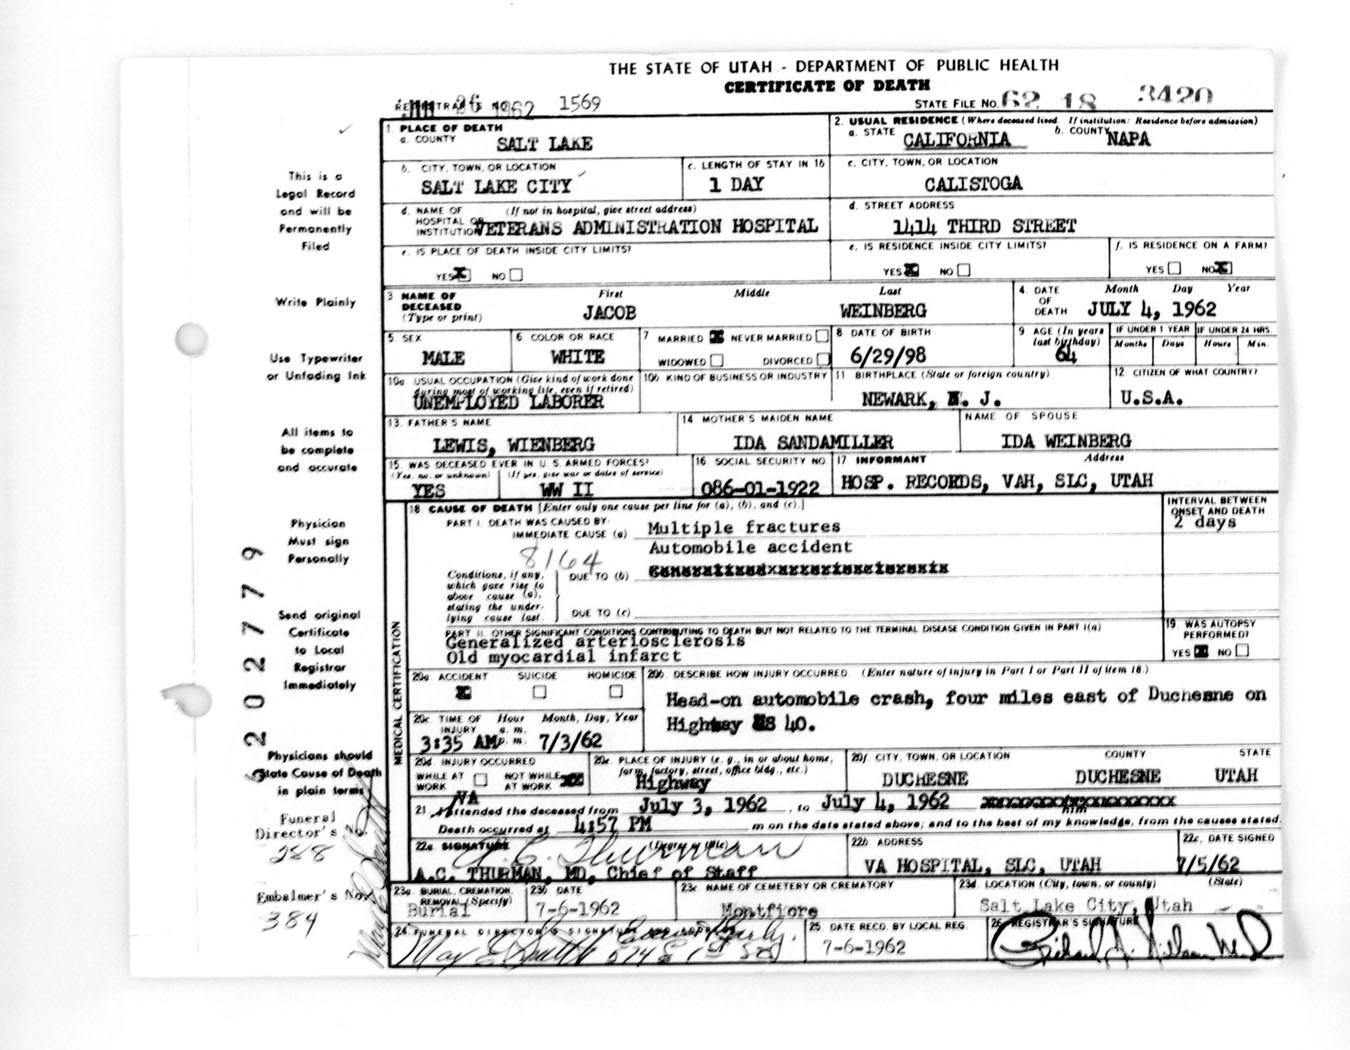 THE STATE OF UTAH - DEPARTMENT OF PUBLIC HEALTH
CERTIFICATE OF DEATH
REGISTRAR'S NO. 1569
JUN 26 1962
STATE FILE NO. 62 18 3420
1. PLACE OF DEATH
a. COUNTY SALT LAKE
2. USUAL RESIDENCE (Where deceased lived. If institution: Residence before admission)
a. STATE CALIFORNIA b. COUNTY NAPA
b. CITY, TOWN, OR LOCATION
SALT LAKE CITY
c. LENGTH OF STAY IN 1b
1 DAY
c. CITY, TOWN, OR LOCATION
CALISTOGA
d. NAME OF HOSPITAL OR INSTITUTION (If not in hospital, give street address)
VETERANS ADMINISTRATION HOSPITAL
d. STREET ADDRESS
1414 THIRD STREET
e. IS PLACE OF DEATH INSIDE CITY LIMITS?
YES X NO
e. IS RESIDENCE INSIDE CITY LIMITS?
YES X NO
f. IS RESIDENCE ON A FARM?
YES NO X
3 NAME OF DECEASED (Type or print)
First Middle Last
JACOB WEINBERG
4. DATE OF DEATH Month Day Year
JULY 4, 1962
5. SEX
MALE
6 COLOR OR RACE
WHITE
7 MARRIED X NEVER MARRIED
WIDOWED DIVORCED
8 DATE OF BIRTH
6/29/98
9 AGE (In years last birthday)
64
IF UNDER 1 YEAR IF UNDER 24 HRS.
Months Days Hours Min.
10a USUAL OCCUPATION (Give kind of work done during most of working life, even if retired)
UNEMPLOYED LABORER
10b KIND OF BUSINESS OR INDUSTRY
11 BIRTHPLACE (State or foreign country)
NEWARK, N. J.
12 CITIZEN OF WHAT COUNTRY?
U.S.A.
13. FATHER'S NAME
LEWIS, WIENBERG
14 MOTHER'S MAIDEN NAME
IDA SANDAMILLER
NAME OF SPOUSE
IDA WEINBERG
15. WAS DECEASED EVER IN U. S. ARMED FORCES?
(Yes, no, or unknown) (If yes, give war or dates of service)
YES WW II
16. SOCIAL SECURITY NO
086-01-1922
17 INFORMANT Address
HOSP. RECORDS, VAH, SLC, UTAH
MEDICAL CERTIFICATION
18 CAUSE OF DEATH [Enter only one cause per line for (a), (b), and (c).]
INTERVAL BETWEEN ONSET AND DEATH
2 days
PART I. DEATH WAS CAUSED BY:
IMMEDIATE CAUSE (a) Multiple fractures
Automobile accident
8164
Conditions, if any, which gave rise to above cause (a), stating the underlying cause last.
DUE TO (b) Generalized arteriosclerosis
DUE TO (c)
PART II. OTHER SIGNIFICANT CONDITIONS CONTRIBUTING TO DEATH BUT NOT RELATED TO THE TERMINAL DISEASE CONDITION GIVEN IN PART I(a)
Generalized arteriosclerosis
Old myocardial infarct
19. WAS AUTOPSY PERFORMED?
YES X NO
20a ACCIDENT SUICIDE HOMICIDE
X
20b. DESCRIBE HOW INJURY OCCURRED. (Enter nature of injury in Part I or Part II of item 18.)
Head-on automobile crash, four miles east of Duchesne on
Highway US 40.
20c. TIME OF INJURY Hour Month, Day, Year
a. m. p. m.
3:35 AM 7/3/62
20d. INJURY OCCURRED
WHILE AT WORK NOT WHILE AT WORK X
20e. PLACE OF INJURY (e. g., in or about home, farm, factory, street, office bldg., etc.)
Highway
20f. CITY, TOWN, OR LOCATION COUNTY STATE
DUCHESNE DUCHESNE UTAH
21. VA attended the deceased from July 3, 1962, to July 4, 1962
Death occurred at 4:57 PM m on the date stated above; and to the best of my knowledge, from the causes stated.
22a. SIGNATURE (Degree or title)
A. C. Thurman
A.C. THURMAN, MD, Chief of Staff
22b. ADDRESS
VA HOSPITAL, SLC, UTAH
22c. DATE SIGNED
7/5/62
23a. BURIAL, CREMATION, REMOVAL (Specify)
Burial
23b DATE
7-6-1962
23c NAME OF CEMETERY OR CREMATORY
Montfiore
23d. LOCATION (City, town, or county) (State)
Salt Lake City, Utah
24 FUNERAL DIRECTOR'S SIGNATURE AND ADDRESS
574 E 1st So
25. DATE RECD. BY LOCAL REG.
7-6-1962
26. REGISTRAR'S SIGNATURE
This is a
Legal Record
and will be
Permanently
Filed
Write Plainly
Use Typewriter
or Unfading Ink
All items to
be complete
and accurate
Physician
Must sign
Personally
Send original
Certificate
to Local
Registrar
Immediately
Physicians should
State Cause of Death
in plain terms
Funeral
Director's No.
288
Embalmer's No.
384
2 202779